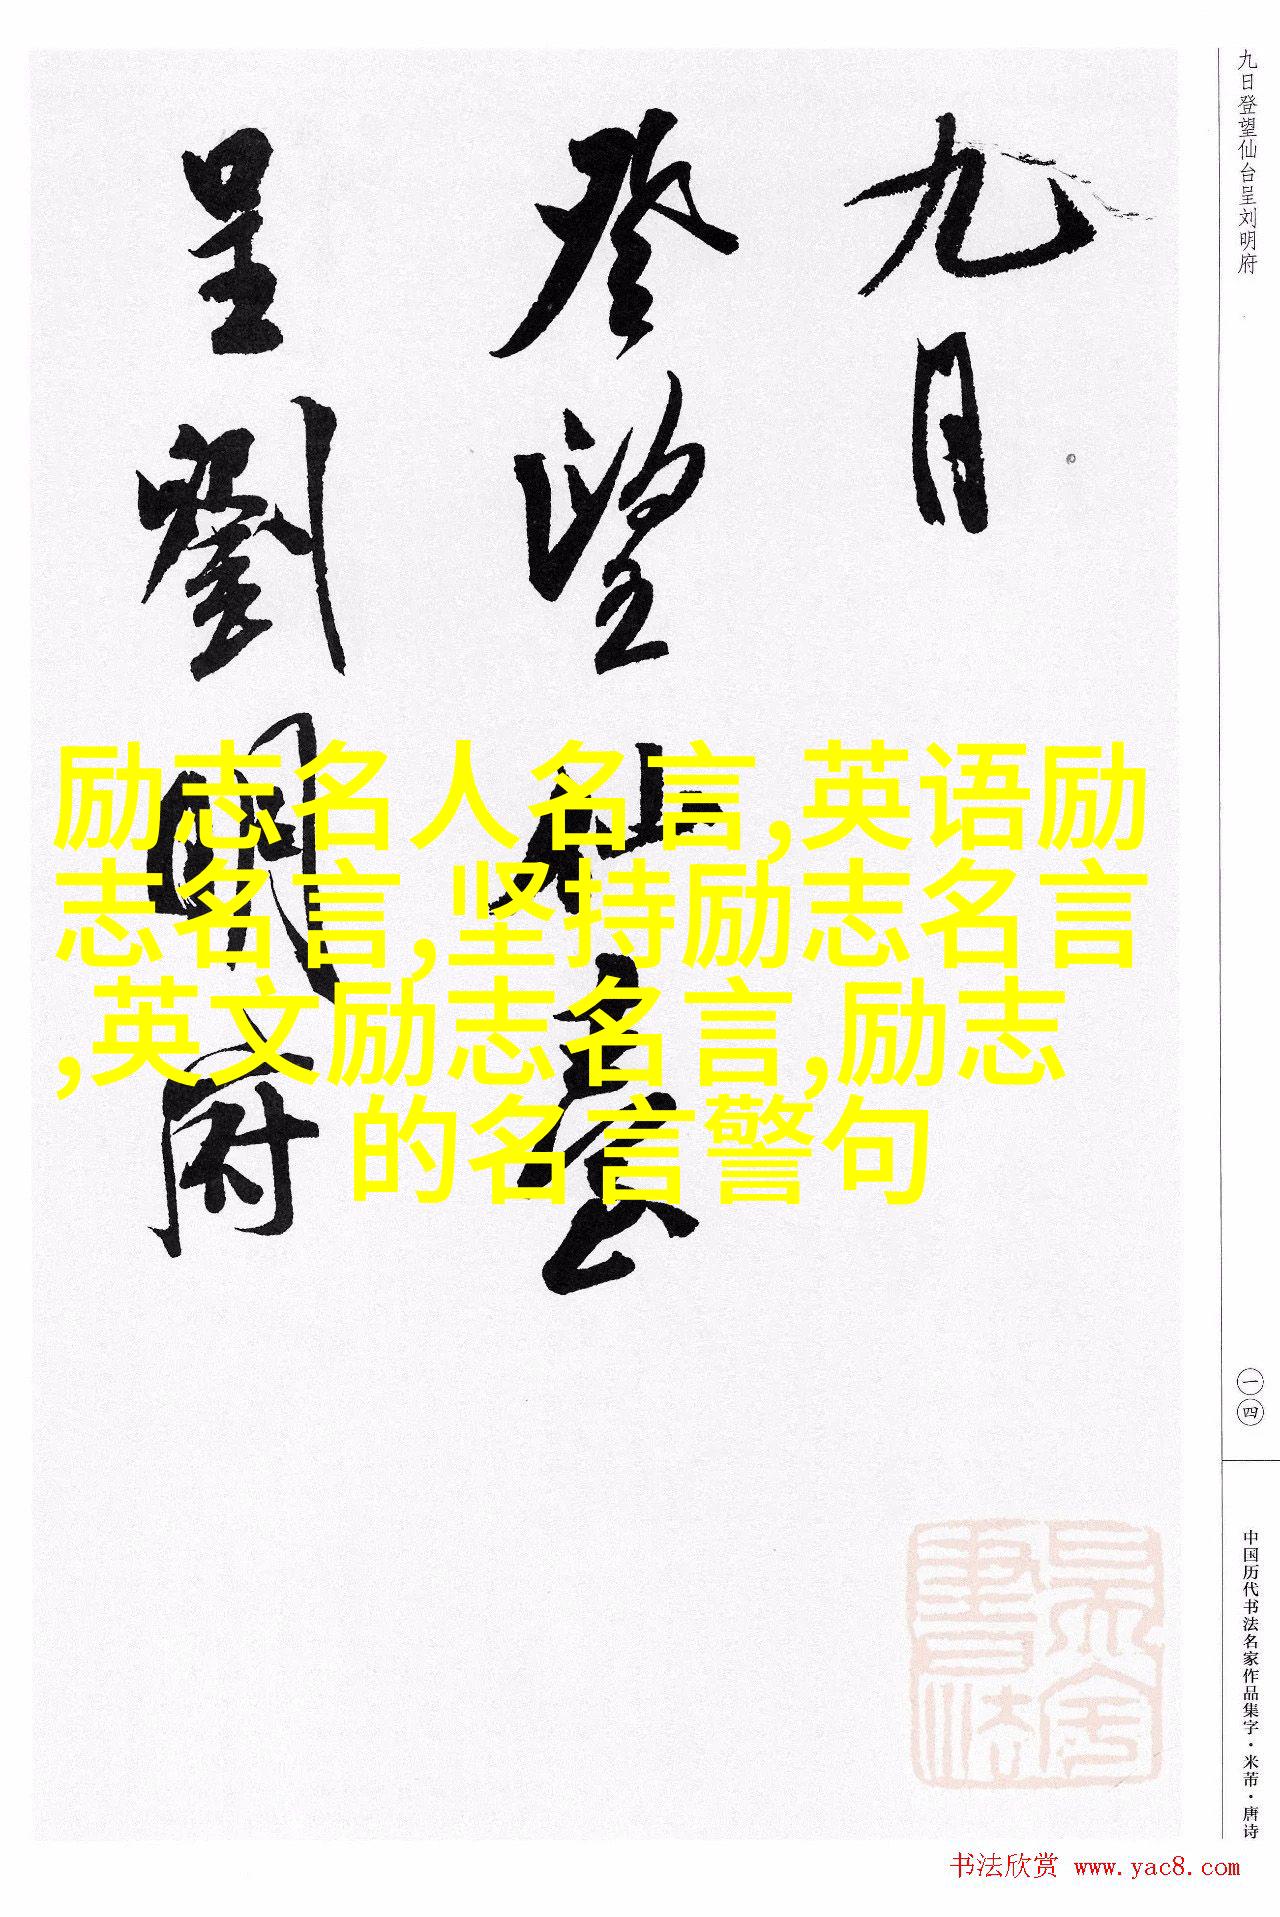 九日
登望仙臺
呈劉明府
九日登望仙台呈刘明府
一四
中国历代书法名家作品集字·米芾·唐诗
励志名人名言,英语励
志名言,坚持励志名言
,英文励志名言,励志
的名言警句
书法欣赏 www.yac8.com